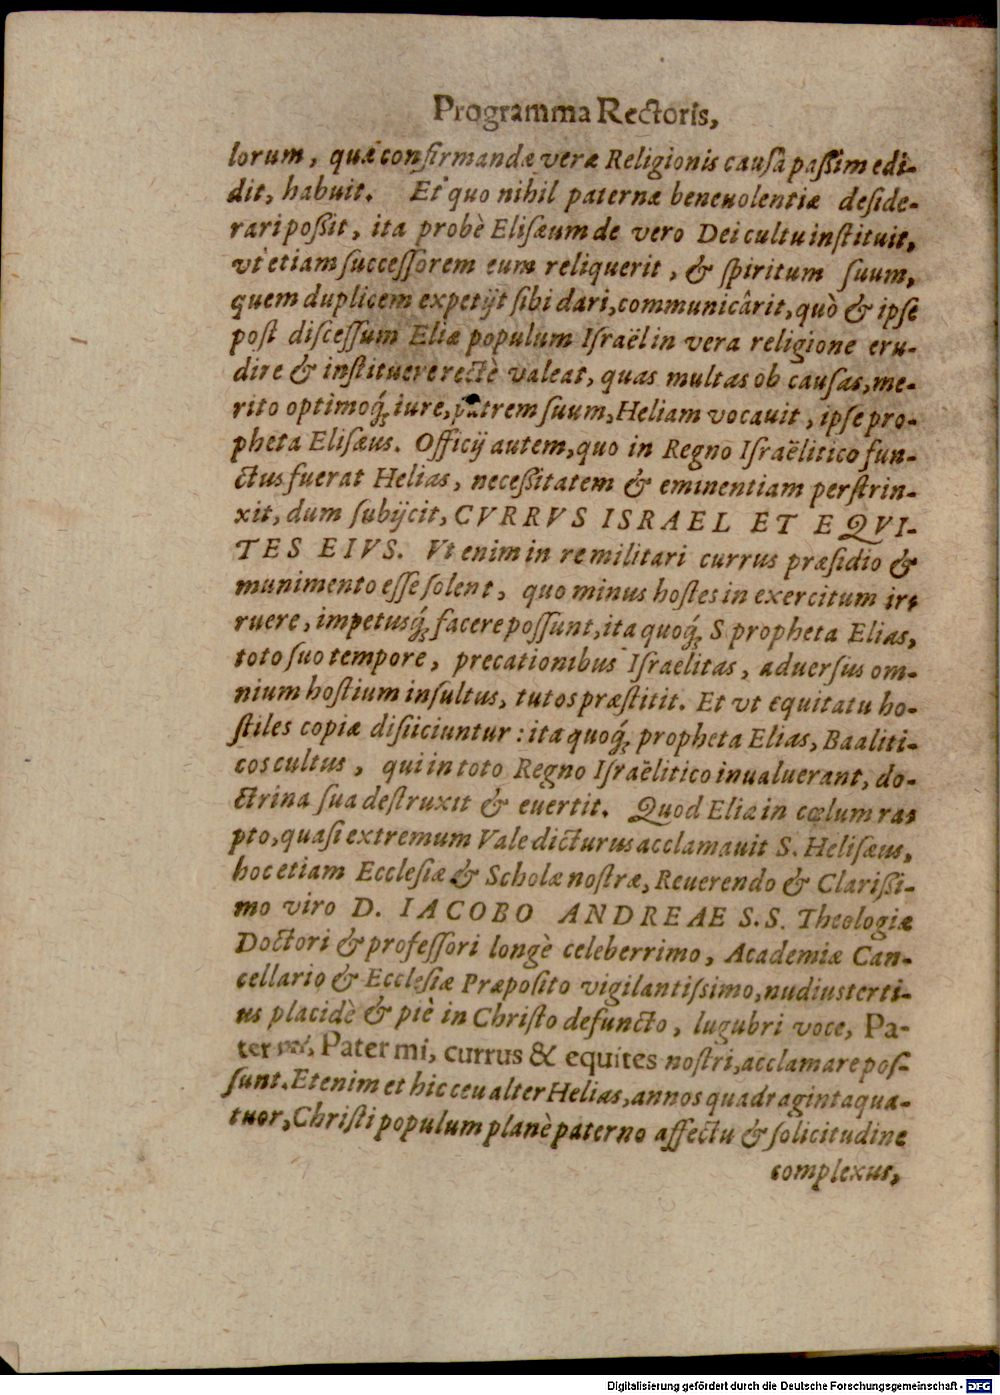 Programma Rectoris,
lorum, quæ confirmandæ veræ Religionis causâ paßim edi-
dit, habuit. Et quo nihil paternæ beneuolentiæ deside-
rari poßit, ita probè Elisæum de vero Dei cultu instituit,
vt etiam successorem eum reliquerit, & spiritum suum,
quem duplicem expetijt sibi dari, communicârit, quò & ipse
post discessum Eliæ populum Israël in vera religione eru-
dire & instituere rectè valeat, quas multas ob causas, me-
rito optimoq́; iure, patrem suum, Heliam vocauit, ipse pro-
pheta Elisæus. Officij autem, quo in Regno Israëlitico fun-
ctus fuerat Helias, neceßitatem & eminentiam perstrin-
xit, dum subijcit, CVRRVS ISRAEL ET EQVI-
TES EIVS. Vt enim in re militari currus præsidio &
munimento esse solent, quo minus hostes in exercitum ir-
ruere, impetusq́; facere possunt, ita quoq́; S. propheta Elias,
toto suo tempore, precationibus Israelitas, aduersus om-
nium hostium insultus, tutos præstitit. Et vt equitatu ho-
stiles copiæ disiiciuntur: ita quoq́; propheta Elias, Baaliti-
cos cultus, qui in toto Regno Israëlitico inualuerant, do-
ctrina sua destruxit & euertit. Quod Elia in cœlum rap-
pto, quasi extremum Vale dicturus acclamauit S. Helisæus,
hoc etiam Ecclesiæ & Scholæ nostræ, Reuerendo & Clarißi-
mo viro D. IACOBO ANDREAE S.S. Theologiæ
Doctori & professori longè celeberrimo, Academiæ Can-
cellario & Ecclesiæ Præposito vigilantissimo, nudiusterti-
us placidè & piè in Christo defuncto, lugubri voce, Pa-
ter mi, Pater mi, currus & equites nostri, acclamare pos-
sunt. Etenim et hic ceu alter Helias, annos quadraginta qua-
tuor, Christi populum planè paterno affectu & solicitudine
complexus,
Digitalisierung gefördert durch die Deutsche Forschungsgemeinschaft - DFG